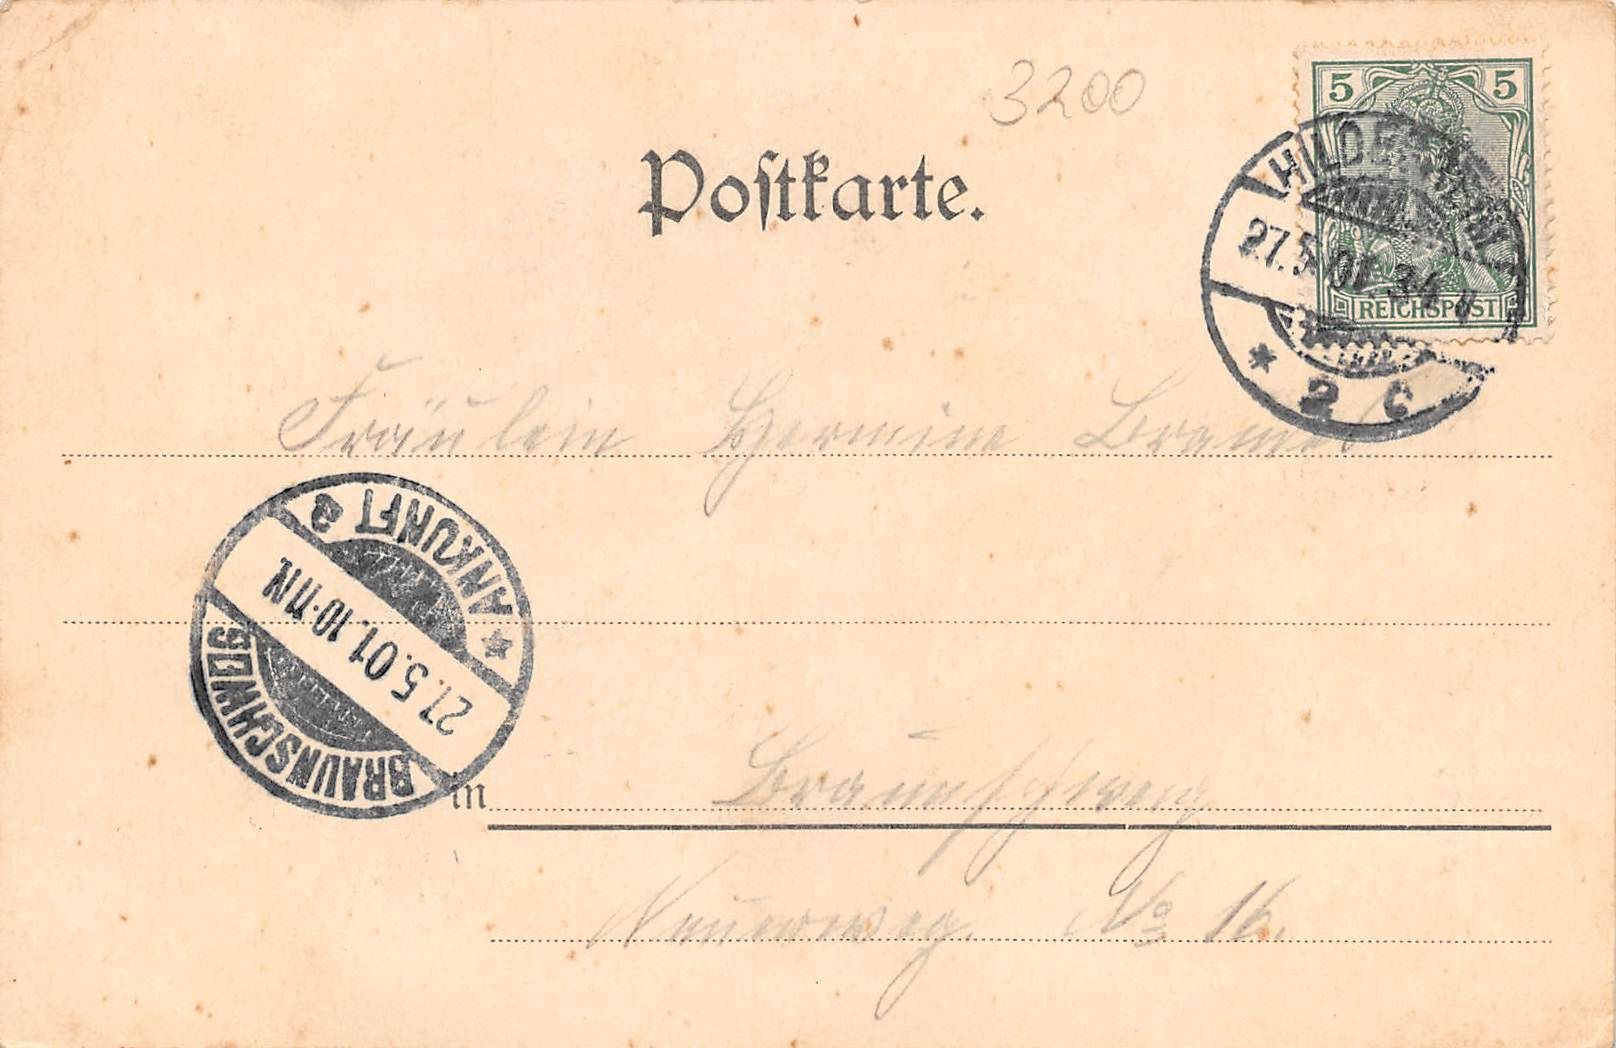 3200
5 5
Postkarte.
REICHSPOST
27.5.01. 3-4 N
* 2 c
Fräulein Hermine
ANKUNFT
27.5.01.10-11N.
BRAUNSCHWEIG
in Braunschweig
No 16.